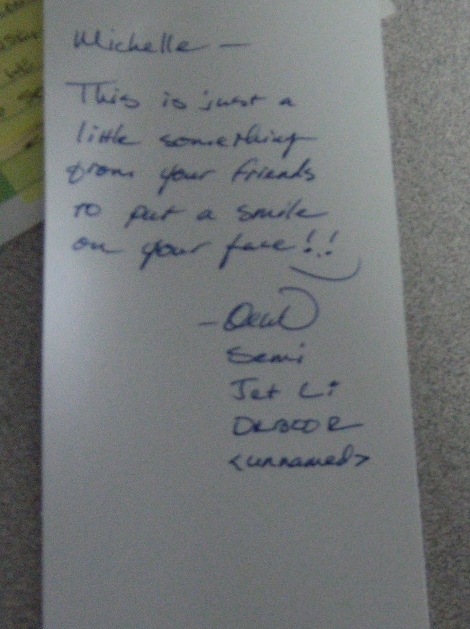 Michelle —
This is just a
little something
from your friends
to put a smile
on your face!!
Semi
Jet Li
<unnamed>